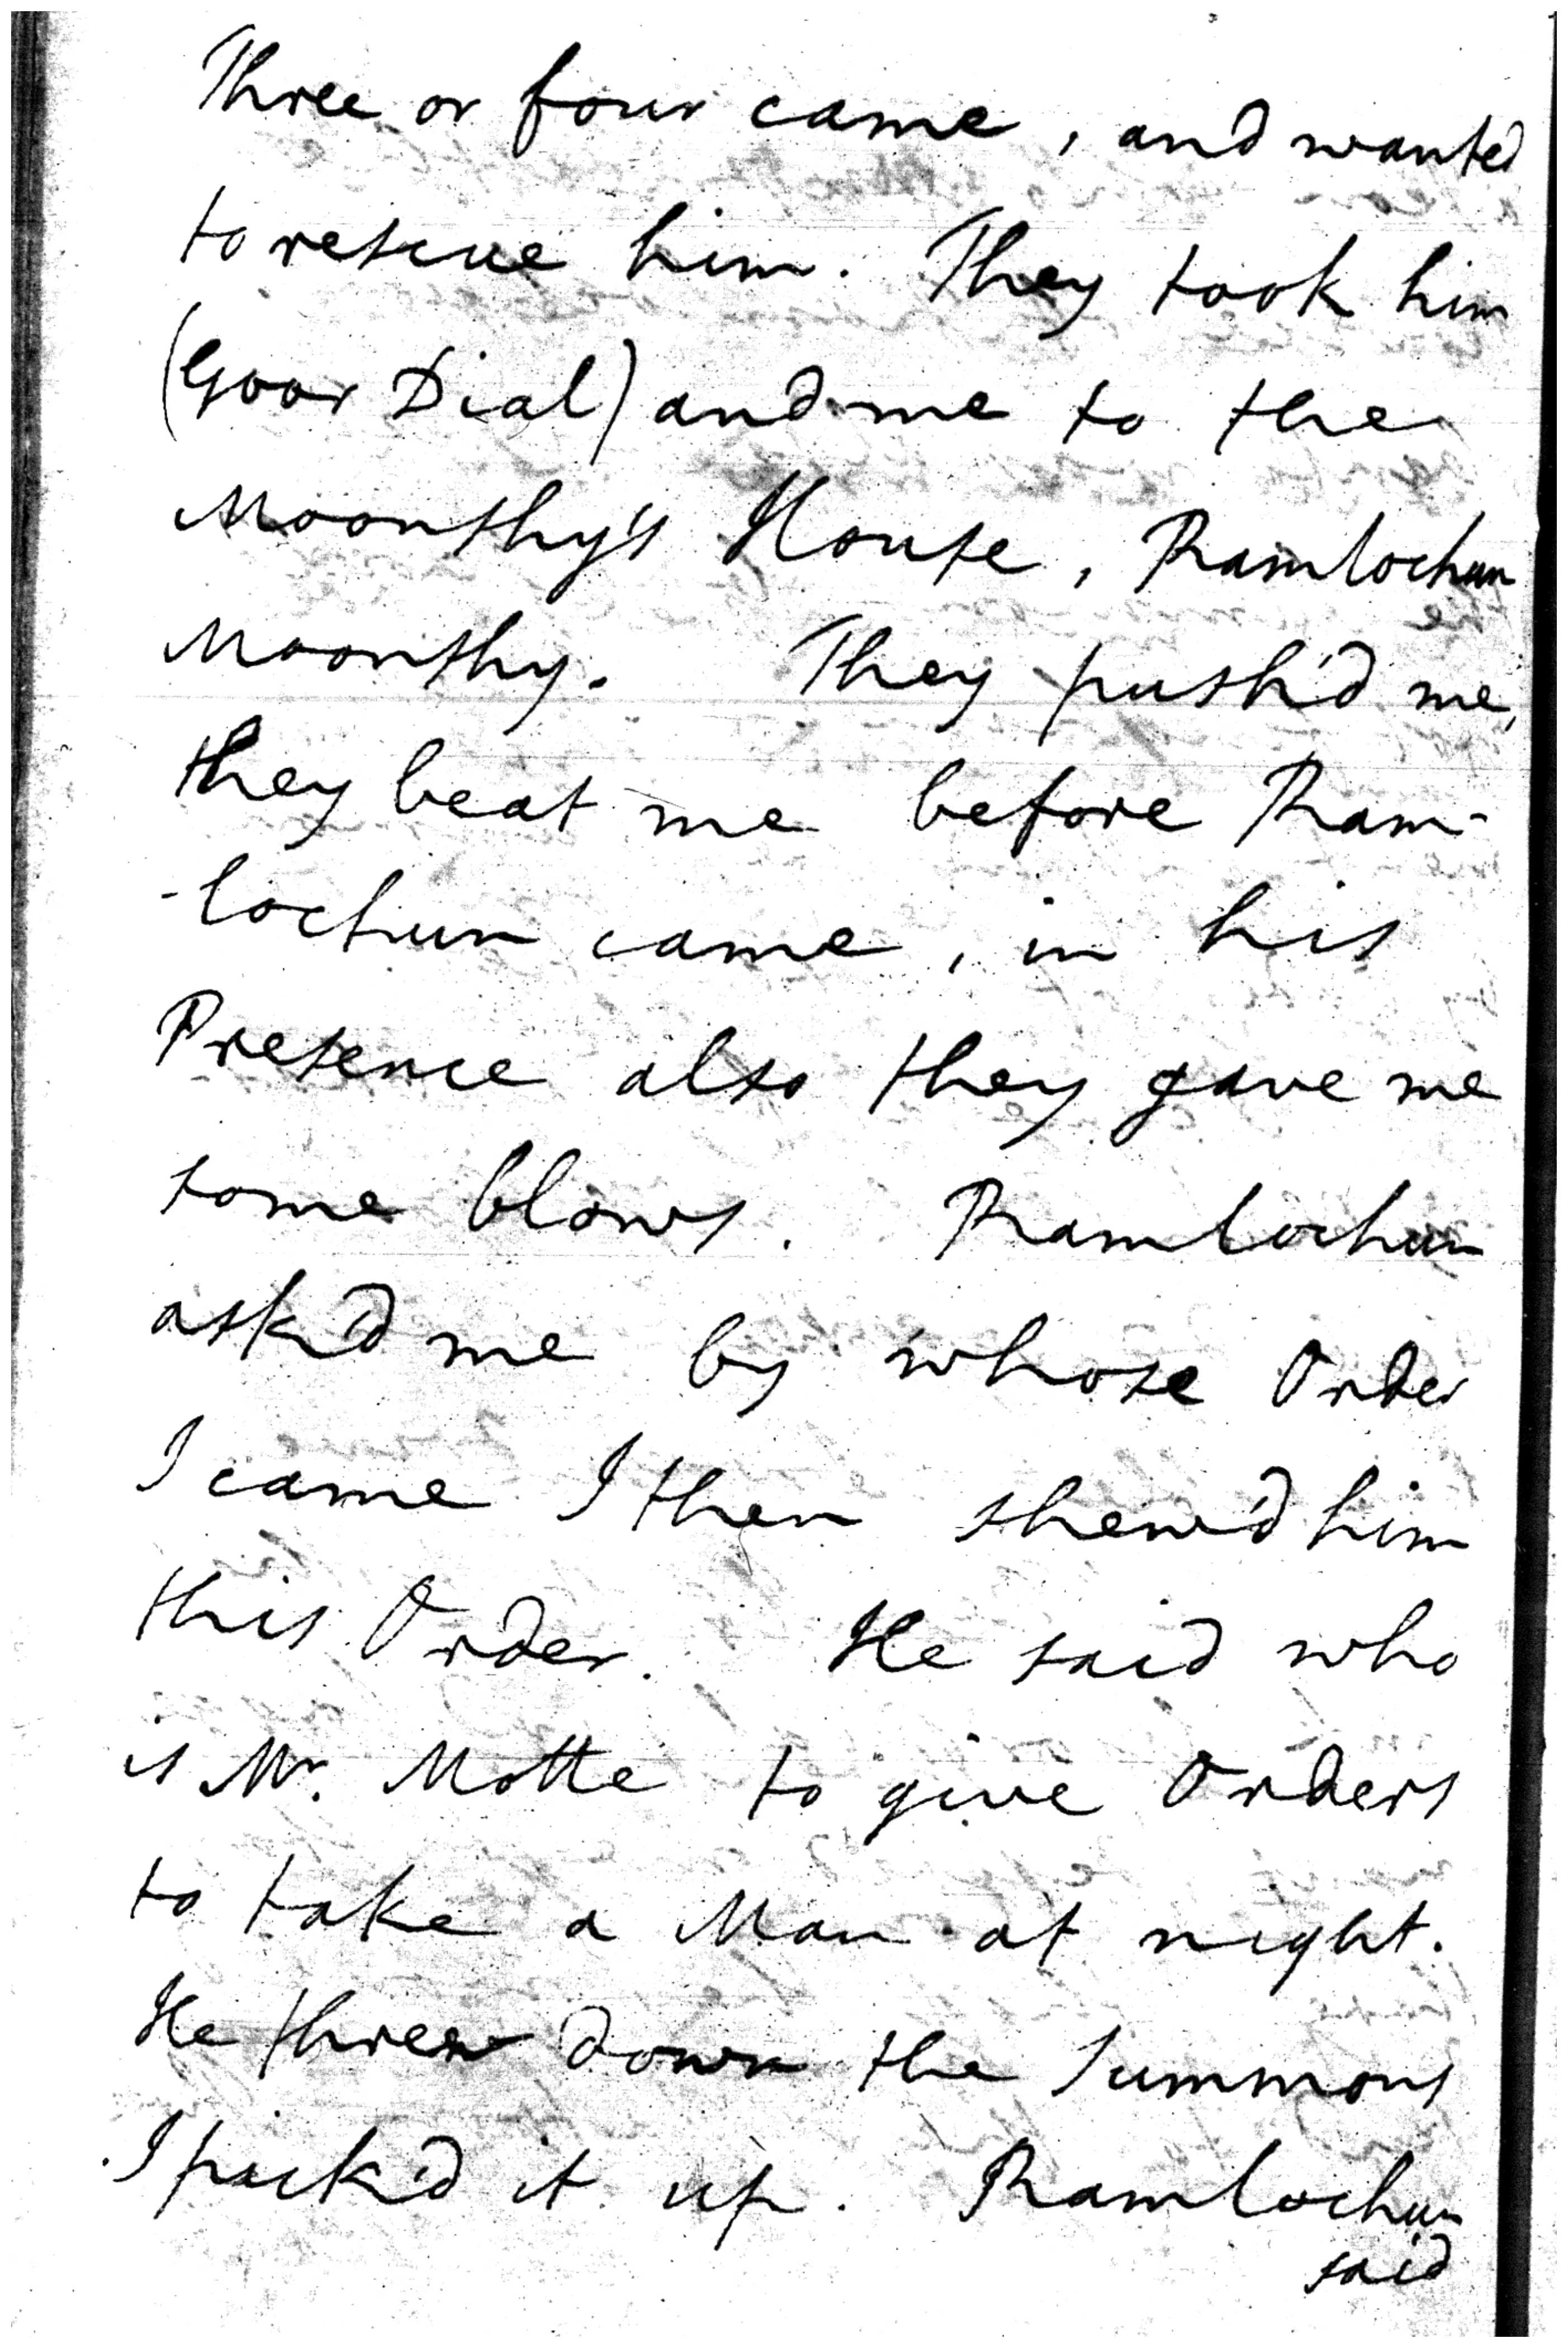 Three or four came, and wanted
to rescue him. They took him
(Goor Dial) and me to the
Moonshy's House, Ramlochun
Moonshy. They push'd me,
they beat me before Ram-
-lochun came, in his
Presence also they gave me
some blows. Ramlochun
ask'd me by whose Order
I came I then shew'd him
this Order. He said who
is Mr. Motte to give Orders
to take a Man at night.
He threw down the Summons
I pick'd it up. Ramlochun
said